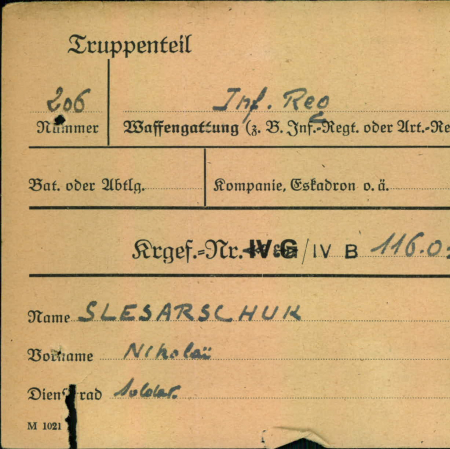 Truppenteil
206 Inf. Reg
Nummer Waffengattung (z. B. Inf.-Regt. oder Art.-Re
Bat. oder Abtlg. Kompanie, Eskadron o. ä.
Krgef.-Nr. IV G / IV B 116.0
Name SLESARSCHUK
Vorname Nikolaü
Dienstgrad Soldat.
M 1021